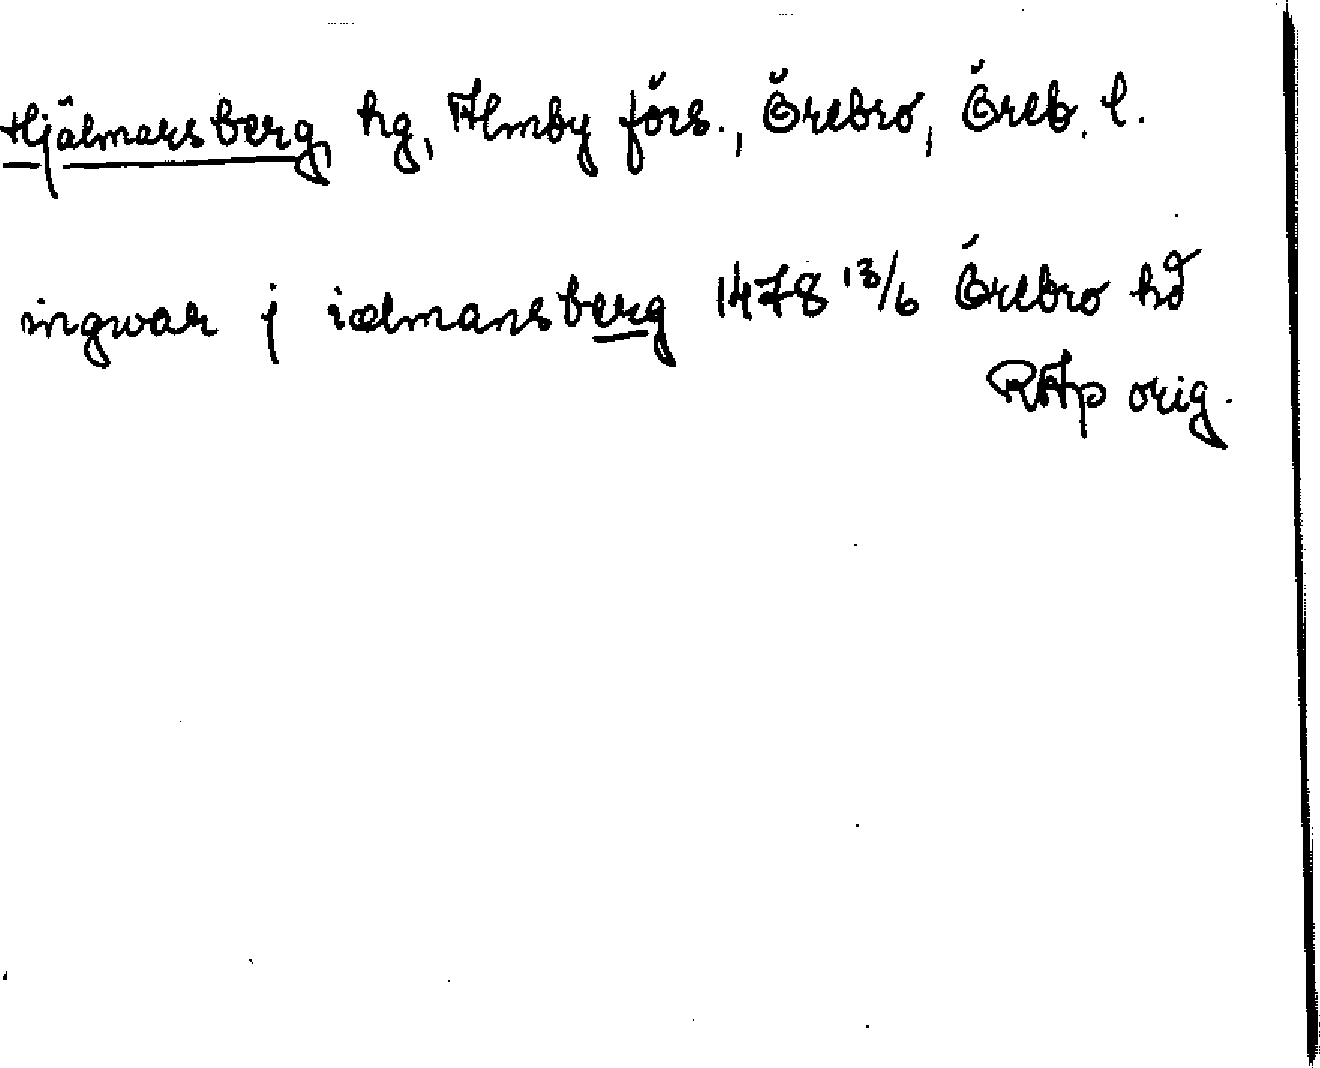 Hjälmarsberg, hg, Almby förs., Örebro, Öreb. l.
ingwar j iælmansberg 1478 13/6 Örebro hd
RAp orig.